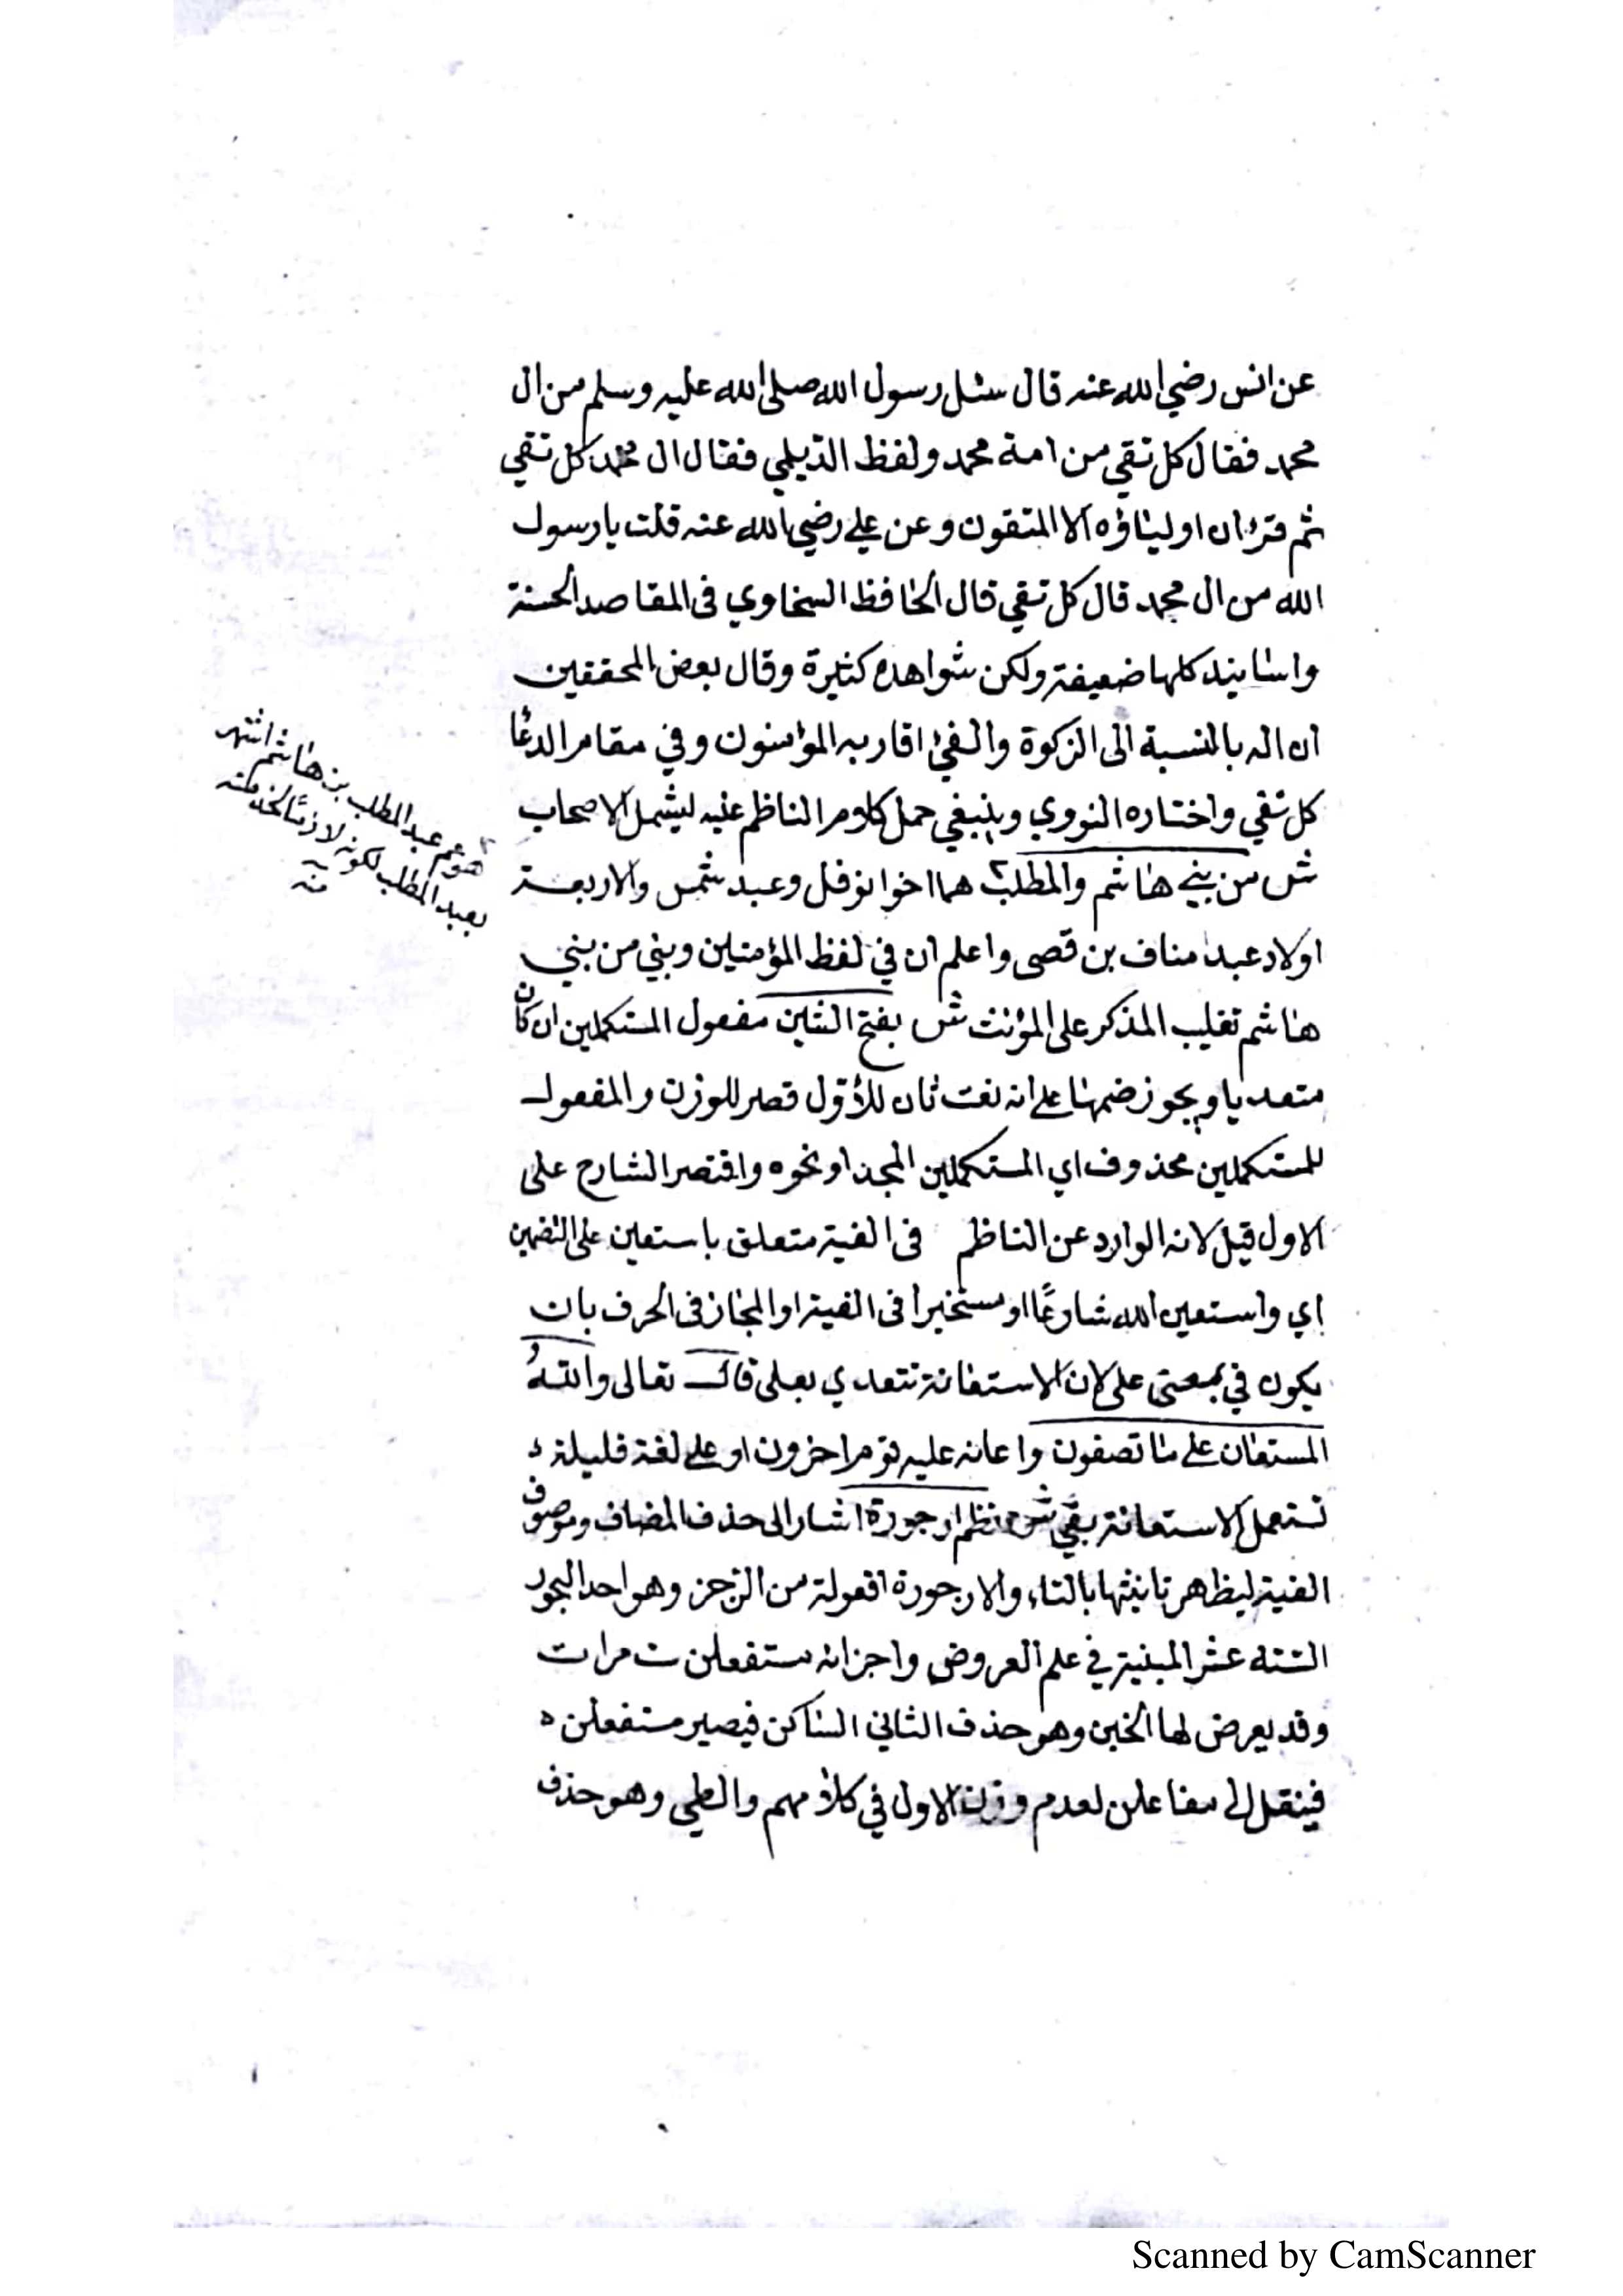 عن انس رضي الله عنه قال سئل رسول الله صلى الله عليه وسلم من ال
محمد فقال كل تقي من امة محمد ولفظ الديلمي فقال ال محمد كل تقي
ثم قرٔ ان اولياؤه الا المتقون وعن علي رضي الله عنه قلت يا رسول
الله من ال محمد قال كل تقي قال الحافظ السخاوي فى المقاصد الحسنة
واسانيد كلها ضعيفة ولكن شواهده كثيرة وقال بعض المحققين
ان اله بالنسبة الى الزكوة والفئ اقاربه المؤمنون وفي مقام الدعا
كل تقي واختاره النووي وينبغي حمل كلام الناظم عليه ليشمل الاصحاب
ش من بني هاشم والمطلب هما اخوا نوفل وعبد شمس والاربعة
اولاد عبد مناف بن قصى واعلم ان في لفظ المؤمنين وبني من بني
هاشم تغليب المذكر على المؤنث ش بفتح الشين مفعول المستكملين ان كان
متعديا ويجوز ضمها على انه نعت ثان للاول قصر للوزن والمفعول
للمستكملين محذوف اي المستكملين المجد او نحوه واقتصر الشارح على
الاول قيل لانه الوارد عن الناظم فى الفية متعلق باستعين على التضمين
اي واستعين الله شارعًا او مستخيرا فى الفية او المجاز فى الحرف بان
يكون في بمعنى على لان الاستعانة تتعدي بعلى قال تعالى والله
المستعان على ما تصفون واعانه عليه قوم اخرون او على لغة قليلة
تستعمل الاستعانة بفي ش نظم ارجوزة اشار الى حذف المضاف وموصوف
الفية ليظهر تانيثها بالتاء والارجوزة افعولة من الرجز وهو احد البحور
الستة عشر المبنية في علم العروض واجزائه مستفعلن ست مرات
وقد يعرض لها الخبن وهو حذف الثاني الساكن فيصير متفعلن
فينقل الى مفاعلن لعدم وزن الاول في كلامهم والطي وهو حذف
هو عم عبد المطلب بن هاشم اشتهر
بعبد المطلب لكونه لازمًا لخدمته
منه
Scanned by CamScanner